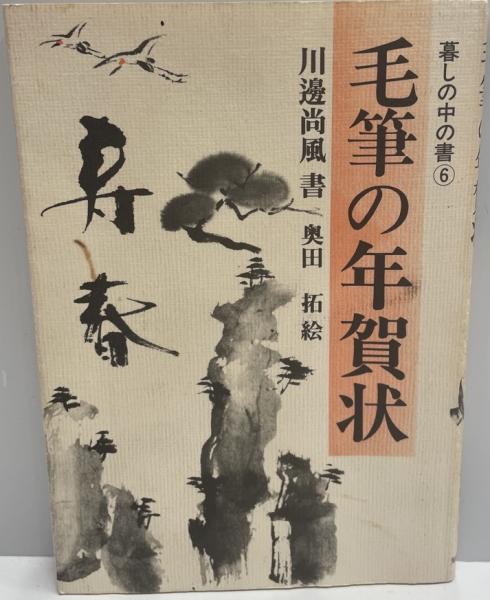 暮しの中の書⑥
毛筆の年賀状
川邊尚風 書
奥田 拓 絵
寿春